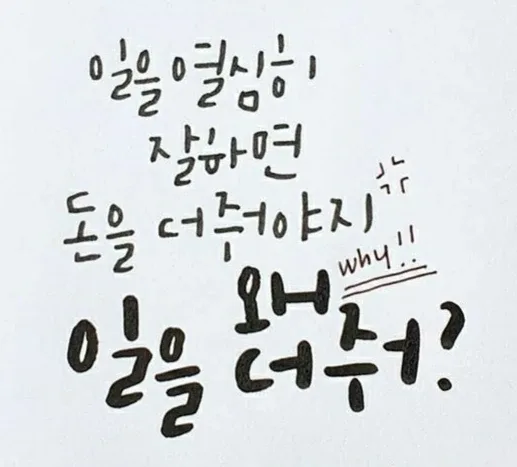 일을 열심히
잘하면
돈을 더줘야지
why!!
왜
일을 더줘?